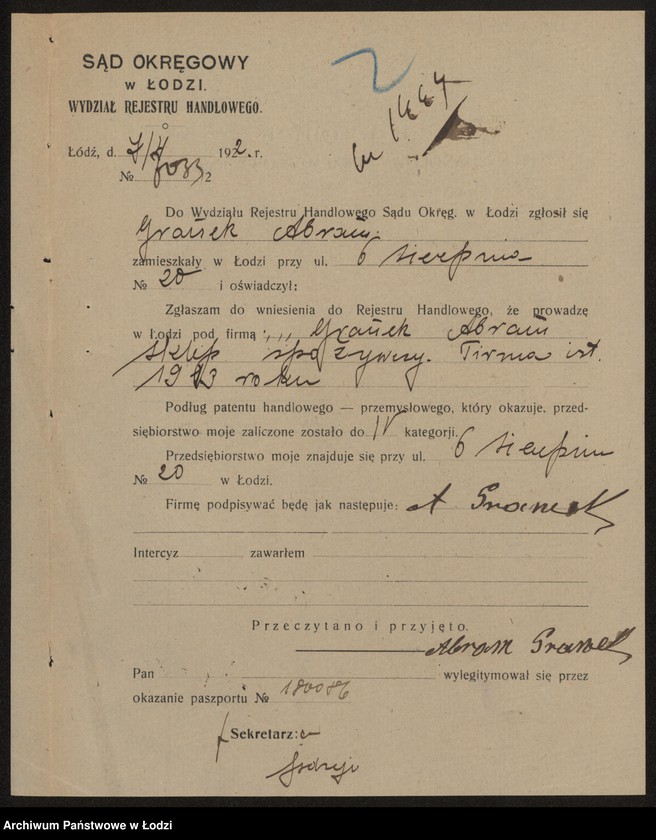 SĄD OKRĘGOWY
w ŁODZI.
WYDZIAŁ REJESTRU HANDLOWEGO.
Łódź, d. 7/4 1922. r.
№ 2
Do Wydziału Rejestru Handlowego Sądu Okręg. w Łodzi zgłosił się
Granek Abram
zamieszkały w Łodzi przy ul. 6 Sierpnia
№ 20 i oświadczył:
Zgłaszam do wniesienia do Rejestru Handlowego, że prowadzę
w Łodzi pod firmą: „Granek Abram
sklep spożywczy. Firma ist.
1913 roku
Podług patentu handlowego — przemysłowego, który okazuje, przed-
siębiorstwo moje zaliczone zostało do IV kategorji.
Przedsiębiorstwo moje znajduje się przy ul. 6 Sierpnia
№ 20 w Łodzi.
Firmę podpisywać będę jak następuje: A Granek
Intercyz zawarłem
Przeczytano i przyjęto.
Abram Granek
Pan wylegitymował się przez
okazanie paszportu № 180086
Sekretarz:
Archiwum Państwowe w Łodzi